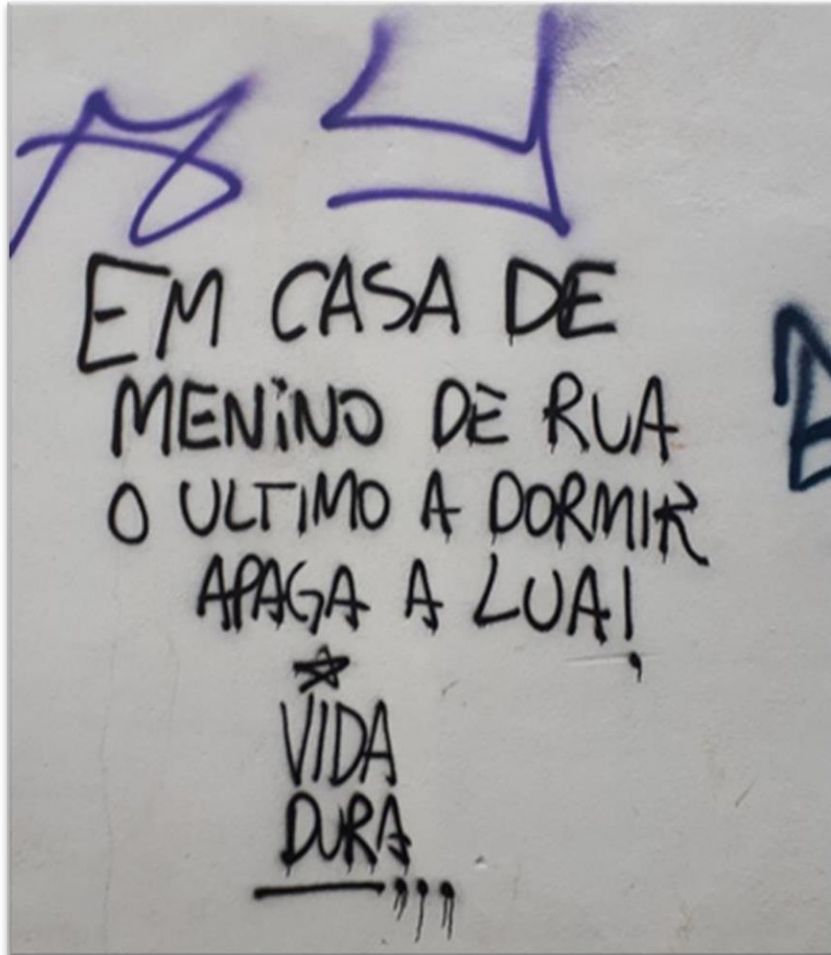 EM CASA DE
MENINO DE RUA
O ULTIMO A DORMIR
APAGA A LUA!
VIDA
DURA,,,